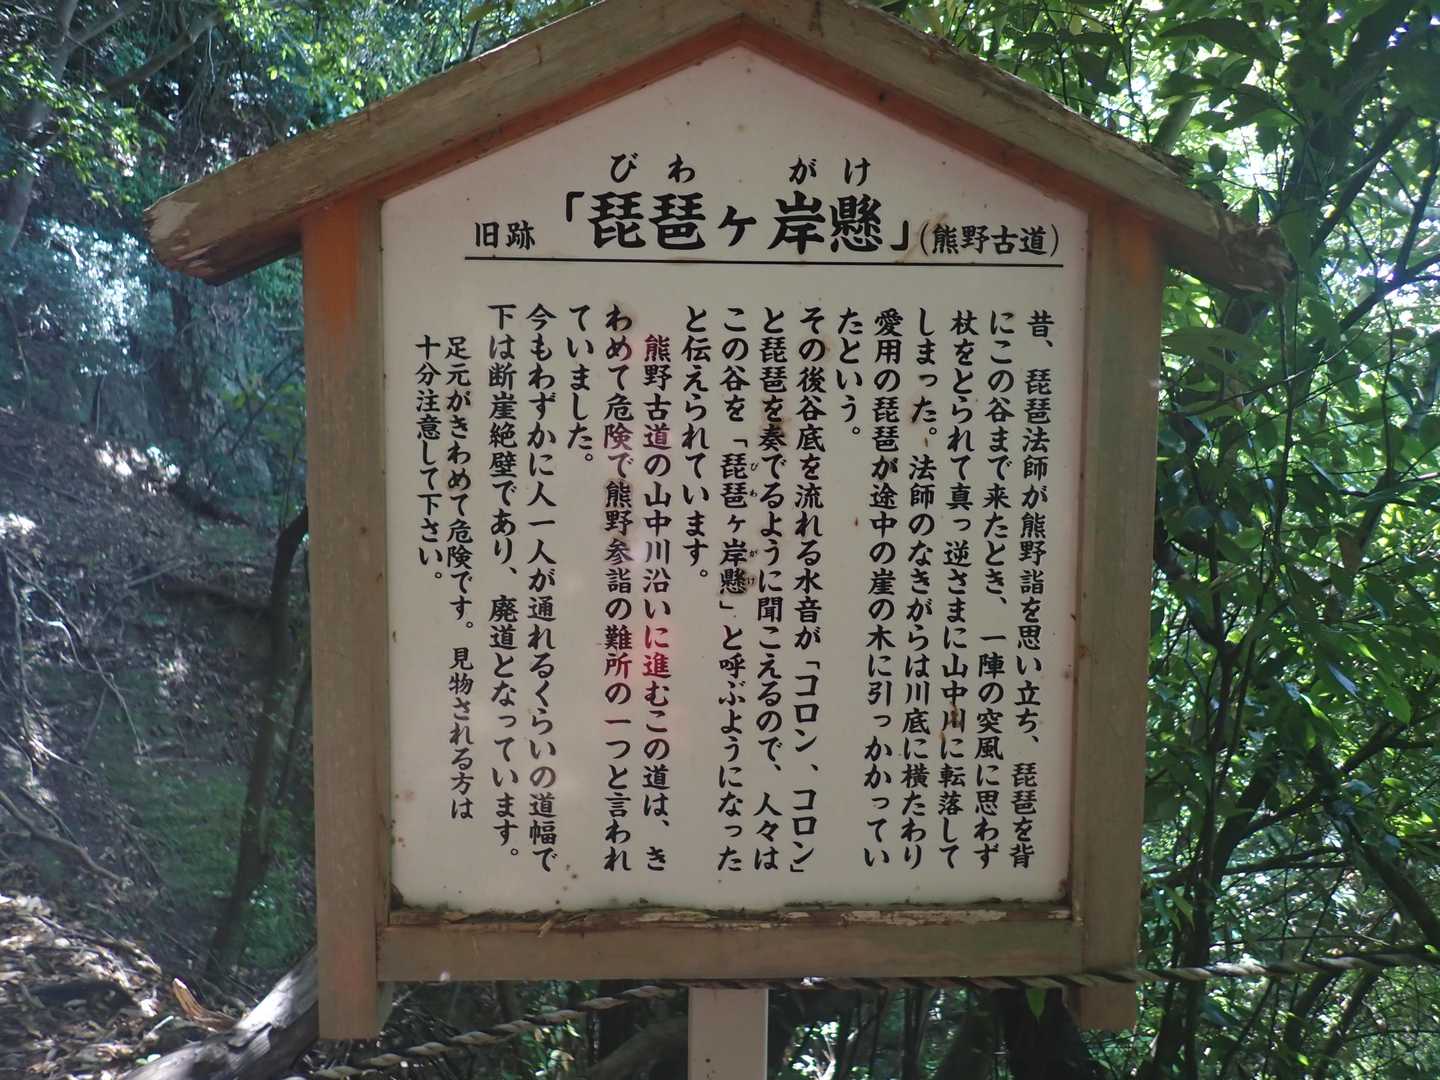 びわ がけ
旧跡「琵琶ヶ岸懸」(熊野古道)
昔、琵琶法師が熊野詣を思い立ち、琵琶を背
にこの谷まで来たとき、一陣の突風に思わず
杖をとられて真っ逆さまに山中川に転落して
しまった。法師のなきがらは川底に横たわり
愛用の琵琶が途中の崖の木に引っかかってい
たという。
その後谷底を流れる水音が「コロン、コロン」
と琵琶を奏でるように聞こえるので、人々は
この谷を「琵琶ヶ岸懸」と呼ぶようになった
びわ がけ
と伝えられています。
熊野古道の山中川沿いに進むこの道は、き
わめて危険で熊野参詣の難所の一つと言われ
ていました。
今もわずかに人一人が通れるくらいの道幅で
下は断崖絶壁であり、廃道となっています。
足元がきわめて危険です。見物される方は
十分注意して下さい。